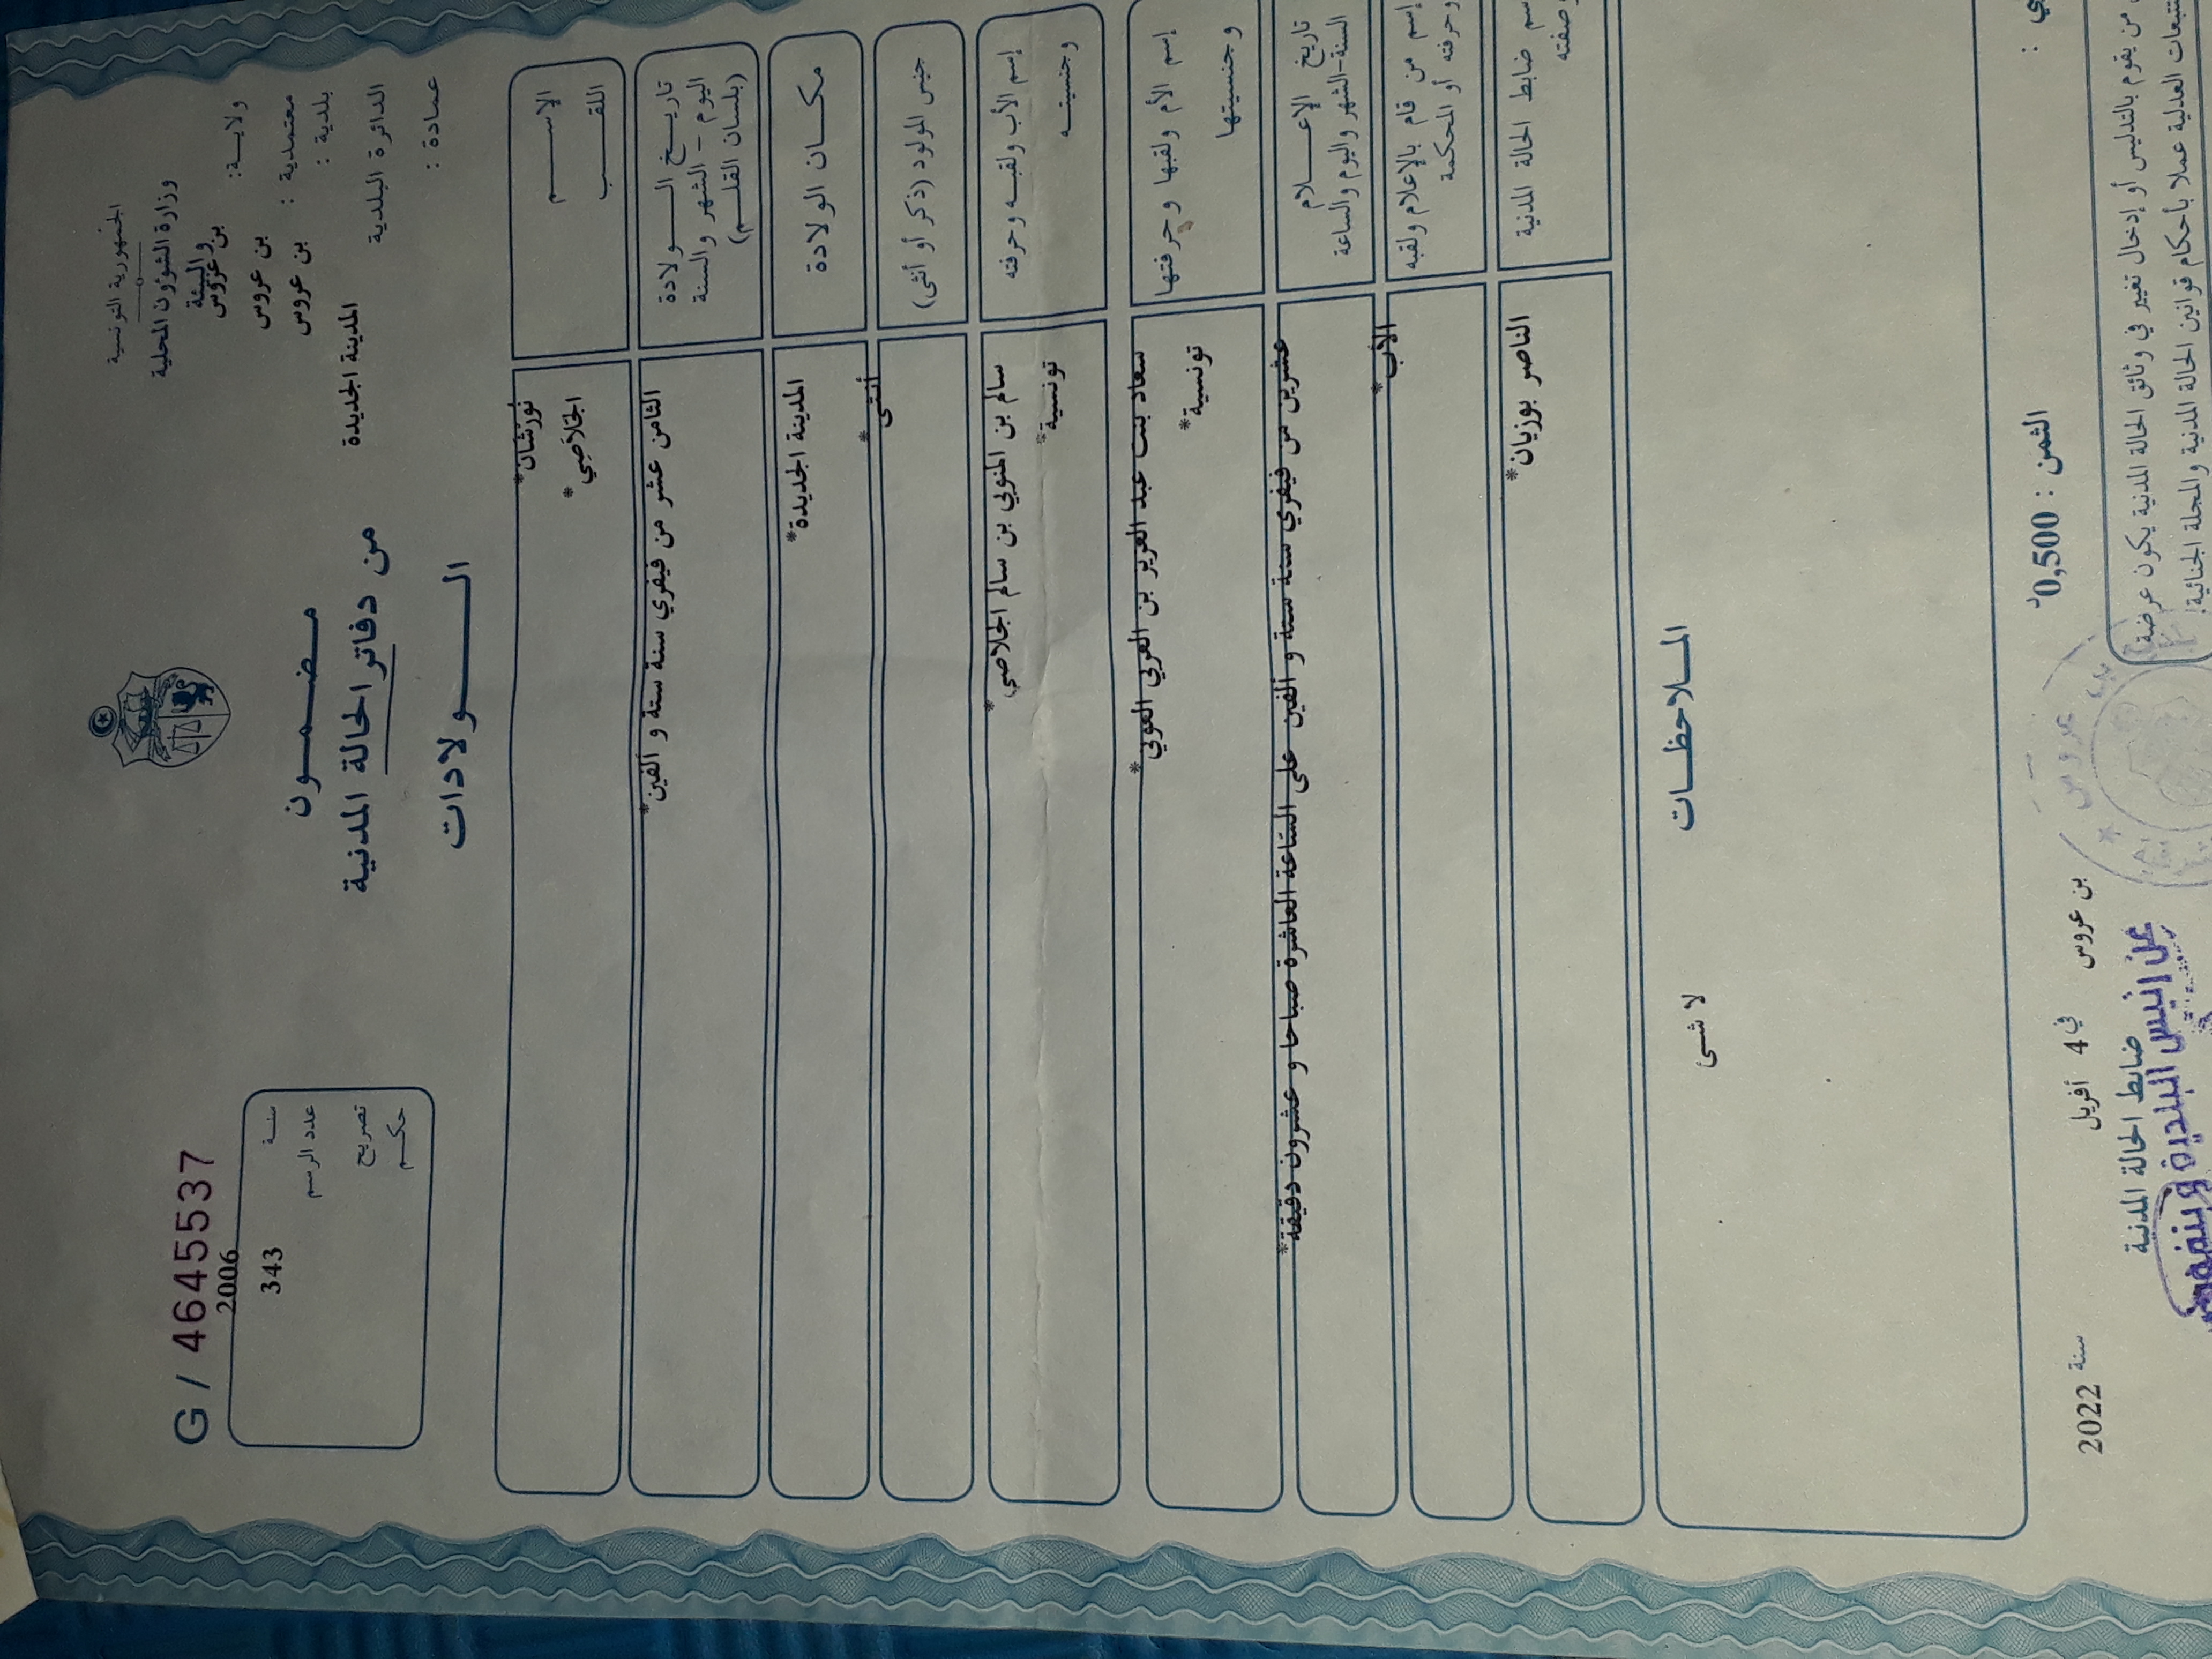 الجمهورية التونسية
وزارة الشؤون المحلية
والبيئة
ولاية: بن عروس
بن عروس
معتمدية : بن عروس
بلدية :
الدائرة البلدية المدينة الجديدة
عمادة :
G / 4645537
2006
سنة
343
عدد الرسم
تصريح
حكم
مضمون
من دفاتر الحالة المدنية
الولادات
الإسم
نورشان*
اللقب
الجلاصي*
تاريخ الولادة
اليوم - الشهر والسنة
(بلسان القلم)
الثامن عشر من فيفري سنة ستة و ألفين*
مكان الولادة
المدينة الجديدة*
جنس المولود (ذكر أو أنثى)
أنثى*
إسم الأب ولقبه وحرفته
سالم بن المنوبي بن سالم الجلاصي*
وجنسيته
تونسية*
إسم الأم ولقبها وحرفتها
سعاد بنت عبد العزيز بن العربي العوني*
وجنسيتها
تونسية*
تاريخ الإعلام
السنة-الشهر واليوم والساعة
عشرين من فيفري سنة ستة و ألفين على الساعة العاشرة صباحا و عشرون دقيقة*
إسم من قام بالإعلام ولقبه
وحرفته أو المحكمة
الأب*
ضابط الحالة المدنية
وصفته
الناصر بوزيان*
الملاحظات
لا شئ
الثمن : 0,500د
بن عروس في 4 أفريل سنة 2022
ضابط الحالة المدنية
عن رئيس البلدية وبتفويض
من يقوم بالتدليس أو إدخال تغيير في وثائق الحالة المدنية يكون عرضة
للتتبعات العدلية عملا بأحكام قوانين الحالة المدنية والمجلة الجنائية